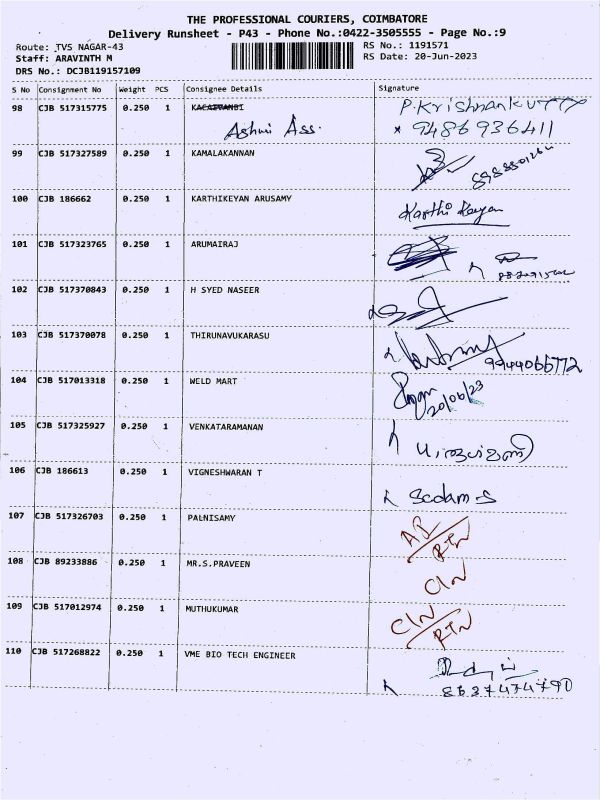 THE PROFESSIONAL COURIERS, COIMBATORE
Delivery Runsheet - P43 - Phone No.:0422-3505555 - Page No.:9
Route: TVS NAGAR-43 RS No.: 1191571
Staff: ARAVINTH M RS Date: 20-Jun-2023
DRS No.: DCJB119157109
S No Consignment No Weight PCS Consignee Details Signature
98 CJB 517315775 0.250 1 P.Krishnankutty
Ashwi Ass. * 9486936411
99 CJB 517327589 0.250 1 KAMALAKANNAN
100 CJB 186662 0.250 1 KARTHIKEYAN ARUSAMY Karthi Keyan
101 CJB 517323765 0.250 1 ARUMAIRAJ
102 CJB 517370843 0.250 1 H SYED NASEER
103 CJB 517370078 0.250 1 THIRUNAVUKARASU 9944066772
104 CJB 517013318 0.250 1 WELD MART 20/06/23
105 CJB 517325927 0.250 1 VENKATARAMANAN
106 CJB 186613 0.250 1 VIGNESHWARAN T
107 CJB 517326703 0.250 1 PALNISAMY RTN
108 CJB 89233886 0.250 1 MR.S.PRAVEEN CIN
109 CJB 517012974 0.250 1 MUTHUKUMAR CIN RTN
110 CJB 517268822 0.250 1 VME BIO TECH ENGINEER
8637474790